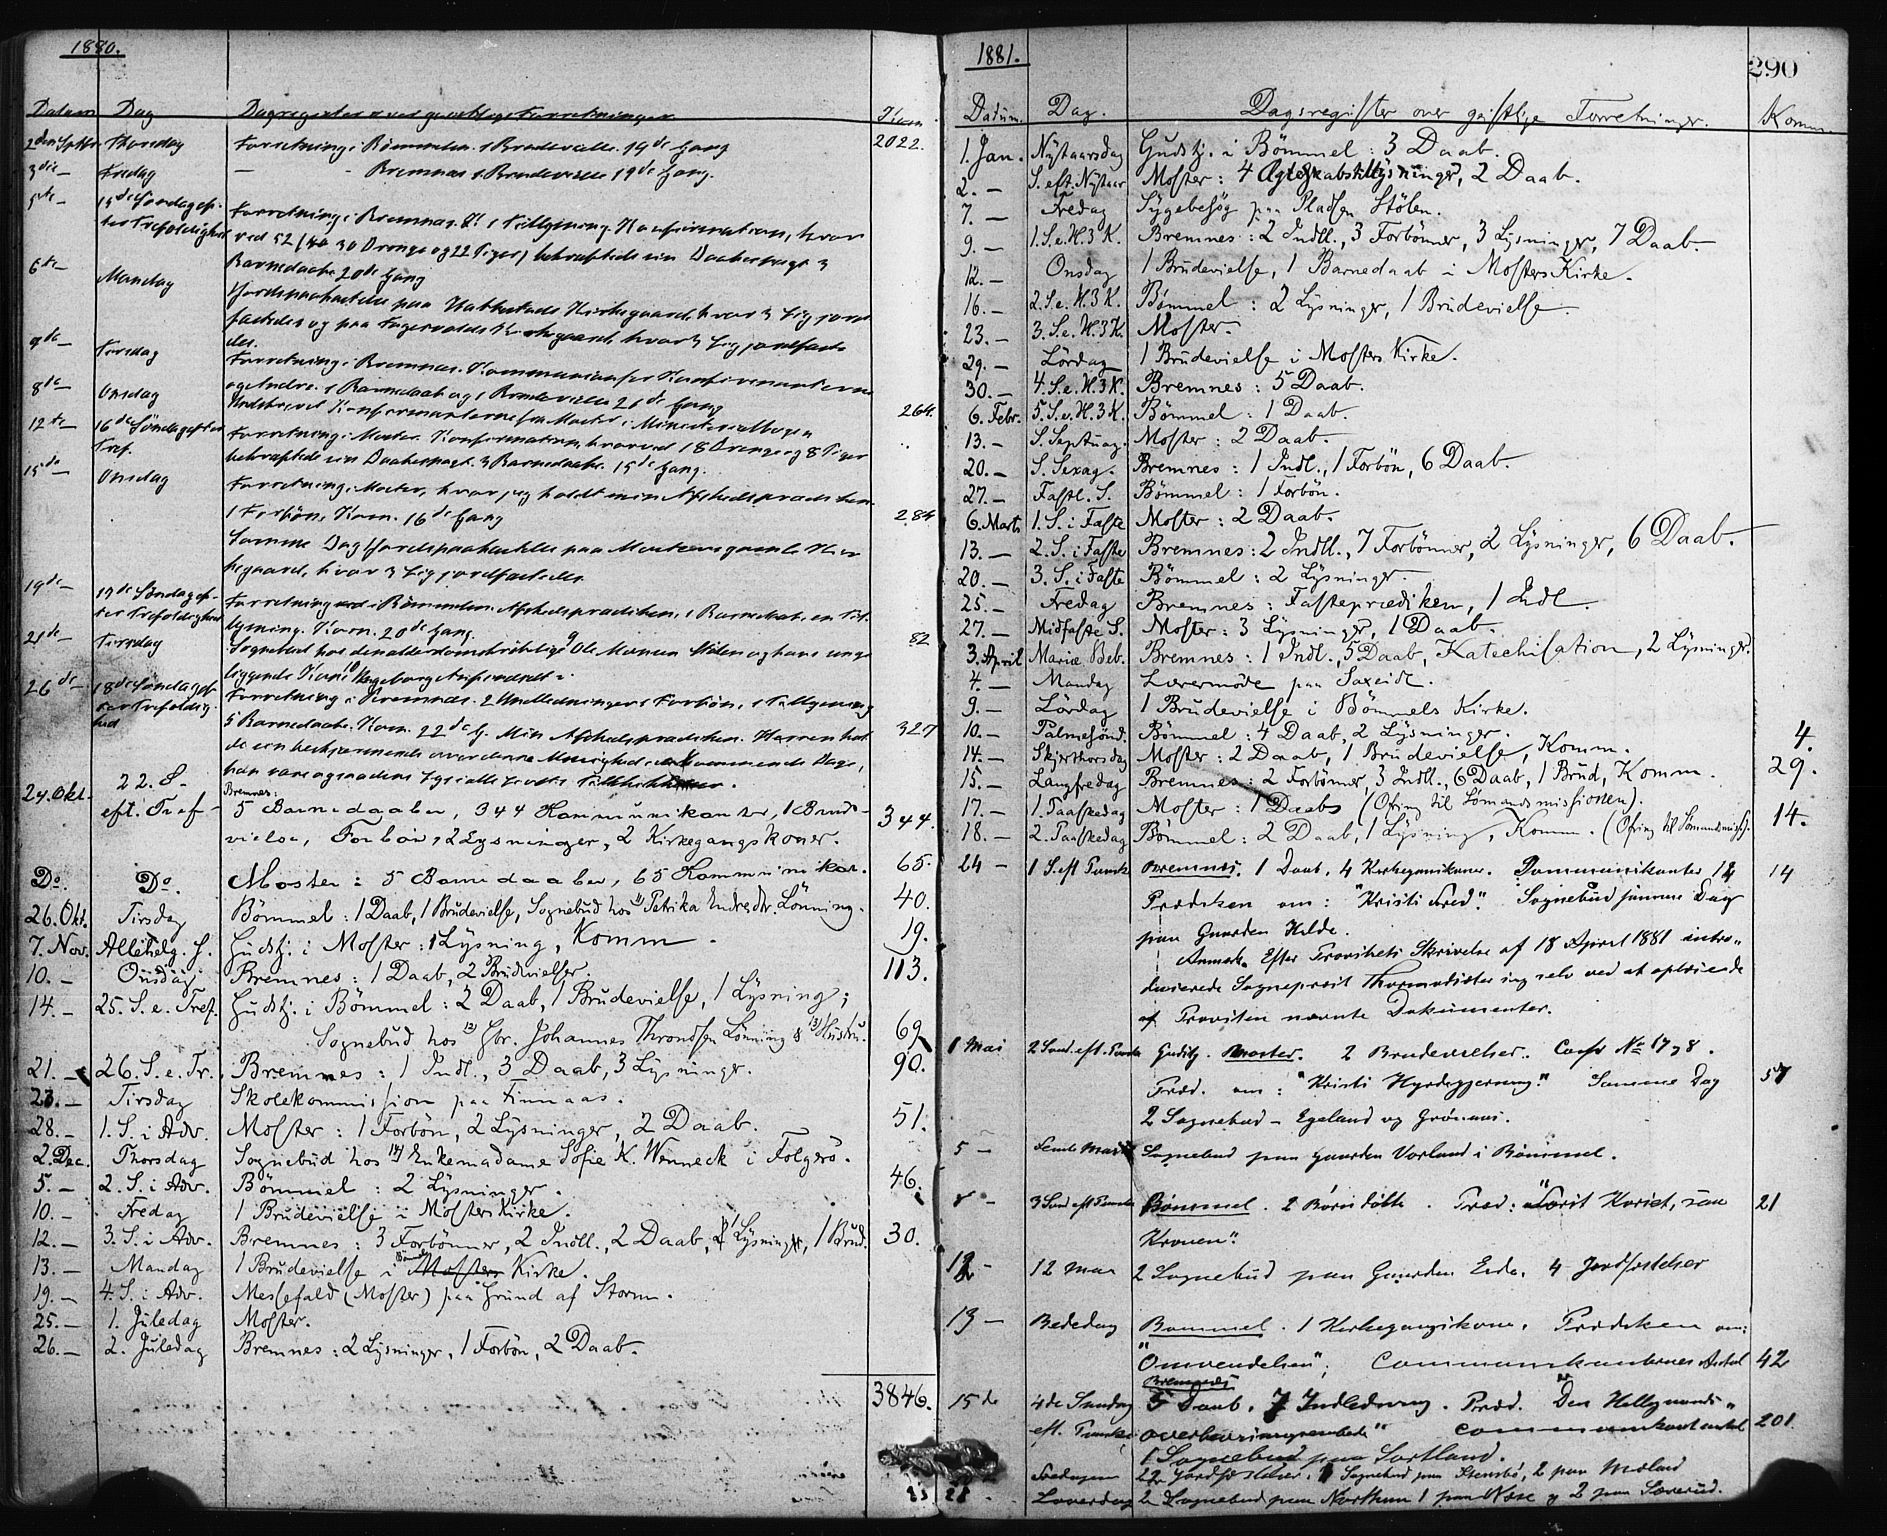 1880.
Datum Dag Dagregister over geistlige Forretninger Kom.
2den Septbr Thorsdag Forretning i Bømmelen. 1 Brudevielse. 19de Gang 2022.
3die — Fredag — - Bremnes 1 Brudevielse 19de Gang.
5te — 15de Søndag ef-
ter Trefoldighed Forretning i Bremnes. 1 Tillysning. Konfirmation, hvor
ved 52 30 Drenge og 22 Piger) bekræftede sin Daabspagt. 3
Barnedaabe 20de Gang
6te — Mandag Jordspaakastelse paa Kirkegaard, hvor 3 Lig jord
fæstedes og paa Kirkegaard, hvor 3 Lig jordfæste
des.
Tirsdag Forretning i Bremnes. Kommunion for Konfirmanterne
og Andre. 1 Barnedaab og 1 Brudevielse 21de Gang 264.
8de — Onsdag Indskrevet Konfirmanterne fra Moster i Ministerialbogen
12te — 16de Søndag efter
Tref. Forretning i Moster. Konfirmation, hvorved 18 Drenge og 8 Piger
bekræftede sin Daabespagt. 3 Barnedaabe. 15de Gang.
15de Onsdag Forretning i Moster, hvor jeg holdt min Afskedsprædiken.
1 Forbøn, Kom. 16de Gang 284
Samme Dag Jordspaakastelse paa Mosters gamle Kir
kegaard, hvor 3 Lig jordfæstedes.
19de — 17de Søndag ef-
ter Trefoldighed Forretning i Bømmelen. Afskedsprædiken, 1 Barnedaab, en Til-
lysning. Kom. 20de Gang. 82
21de — Tirsdag Sognebud hos den alderdomsskrøbelige Ole Monsen og hans senge
liggende Kone Ingeborg
26de — 18de Søndag ef-
ter Trefoldig-
hed Forretning i Bremnes. 2 Indledninger 1 Forbøn, 1 Tillysning
5 Barnedaabe. Kom. 22de G. Min Afskedsprædiken. Herren hol-
de sin beskjærmende over denne Menighed i kommende Dage,
han være og naadens Lys i alle 327
24. Okt. 22. S.
eft. Tref- Bremnes:
5 Barnedaaber, 344 Kommunikanter, 1 Brud-
vielse, Forbøn, 2 Lysninger, 2 Kirkegangskoner. 344.
Do. Do. Moster: 5 Barnedaaber, 65 Kommunikan. 65.
26. Okt. Tirsdag Bömmel: 1 Daab, 1 Brudevielse, Sognebud hos Petrika Endresdtr. Lönning. 40.
7. Nov. Allehelg. S. Gudstj. i Moster: 1 Lysning, Komm. 19.
10. — Onsdag Bremnes: 1 Daab, 2 Brudevielser. 113.
14. — 25. S. e. Tref. Gudstj. i Bömmel: 2 Daab, 1 Brudevielse, 1 Lysning;
Sognebud hos Gbr. Johannes Throndsen Lönning & Hustru. 69
21. — 26. S. e. Tr. Bremnes: 1 Indl., 3 Daab, 3 Lysninger. 90.
23. — Tirsdag Skolekommission paa Finnaas.
28. — 1. S. i Adv. Moster: 1 Forbön, 2 Lysninger, 2 Daab. 51.
2. Dec. Thorsdag Sognebud hos Enkemadame Sofie K. Wenneck i Folgerö.
5. — 2. S. i Adv. Bömmel: 2 Lysninger. 46.
10. — Fredag 1 Brudevielse i Mosters Kirke.
12. — 3. S. i Adv. Bremnes: 3 Forbönner, 2 Indl., 2 Daab, 1 Lysning, 1 Brud. 30.
13. — Mandag 1 Brudevielse i Moster Kirke.
19. — 4. S. i Adv. Messefald (Moster) paa Grund af Storm.
25. — 1. Juledag Moster.
26. — 2. Juledag Bremnes: 2 Lysninger, 1 Forbön, 2 Daab.
3846.
1881. 290
Datum. Dag. Dagsregister over geistlige Forretninger. Komm
1. Jan. Nytaarsdag Gudstj. i Bömmel: 3 Daab.
2. — S. eft. Nytaar Moster: 4 Ægteskabslysninger, 2 Daab.
7. — Fredag Sygebesög paa Pladsen Stölen.
9. — 1. S. e. H. 3 K. Bremnes: 2 Indl., 3 Forbönner, 3 Lysninger, 7 Daab.
12. — Onsdag 1 Brudevielse, 1 Barnedaab i Mosters Kirke.
16. — 2. S. e. H. 3 K. Bömmel: 2 Lysninger, 1 Brudevielse.
23. — 3. S. e. H. 3 K. Moster.
29. — Lördag 1 Brudevielse i Mosters Kirke.
30. — 4. S. e. H. 3 K. Bremnes: 5 Daab.
6. Febr. 5. S. e. H. 3 K. Bömmel: 1 Daab.
13. — S. Septuag. Moster: 2 Daab.
20. — S. Sexag. Bremnes: 1 Indl., 1 Forbön, 6 Daab.
27. — Fastel. S. Bömmel: 1 Forbön.
6. Marts 1. S. i Faste Moster: 2 Daab.
13. — 2. S. i Faste Bremnes: 2 Indl., 7 Forbönner, 2 Lysninger, 6 Daab.
20. — 3. S. i Faste Bömmel: 2 Lysninger.
25. — Fredag Bremnes: Fasteprædiken, 1 Indl.
27. — Midfaste S. Moster: 3 Lysninger, 1 Daab.
3. April Mariæ Beb. Bremnes: 1 Indl., 5 Daab, Katechisation, 2 Lysninger.
4. — Mandag Læremøde paa Saxeid.
9. — Lördag 1 Brudevielse i Bömmels Kirke.
10. — Palmesönd. Bömmel: 4 Daab, 2 Lysninger. 4.
14. — Skjærthorsdag Moster: 2 Daab, 1 Brudevielse, Komm. 29.
15. — Langfredag Bremnes: 2 Forbönner, 3 Indl., 6 Daab, 1 Brud, Komm.
17. — 1. Paaskedag Moster: 1 Daab (Ofring til Sömandsmissionen). 14.
18. — 2. Paaskedag Bömmel: 2 Daab, 1 Lysning, Komm. (Ofring til Sömandsmiss.).
24 — 1 S. eft Paaske Bremnes. 1 Daab, 4 Kirkegangskoner. Communikanter 14 14
Prædiken om: "Kristi Fred." Sognebud samme Dag
paa Gaarden Hilde.
Anmærk. Efter Provstiets Skrivelse af 18 April 1881 intro-
ducerede Sogneprest Thormodsæter sig selv ved at oplæse de
af Provsten nævnte Dokumenter.
1 Mai 2 Sønd. eft. Paaske Gudstj. Moster. 2 Brudevielser. Conf No 17 & 8.
Præd. om: "Kristi Hyrdegjerning." Samme Dag 57
2 Sognebud — Egeland og Grönaas.
5 — 5te Mai Sognebud paa Gaarden Vorland i Bömmel.
8 — 3 Sønd eft Paaske Bömmel. 2 Börn døbte. Præd: "Först Korset, saa
Kronen". 21
12 — 12 Mai 2 Sognebud paa Gaarden Eide. 4 Jordfæstelser
13 — Bededag Bømmel. 1 Kirkegangskone. Prædiken om:
"Omvendelsen"; Communikanternes Antal 42
15de 4de Søndag
eft. Paaske Bremnes
5 Daab. 7 Indledning. Præd. "Den Helligaands-
overbevisningsembede" Communikantantal 201
1 Sognebud paa Sortland.
Fredagen 22 Jordfæstelser. 1 Sognebud paa Stensbö, 2 paa Mæland
Løverdag 2 Sognebud paa 1 paa Næse og 2 paa Sæverud.